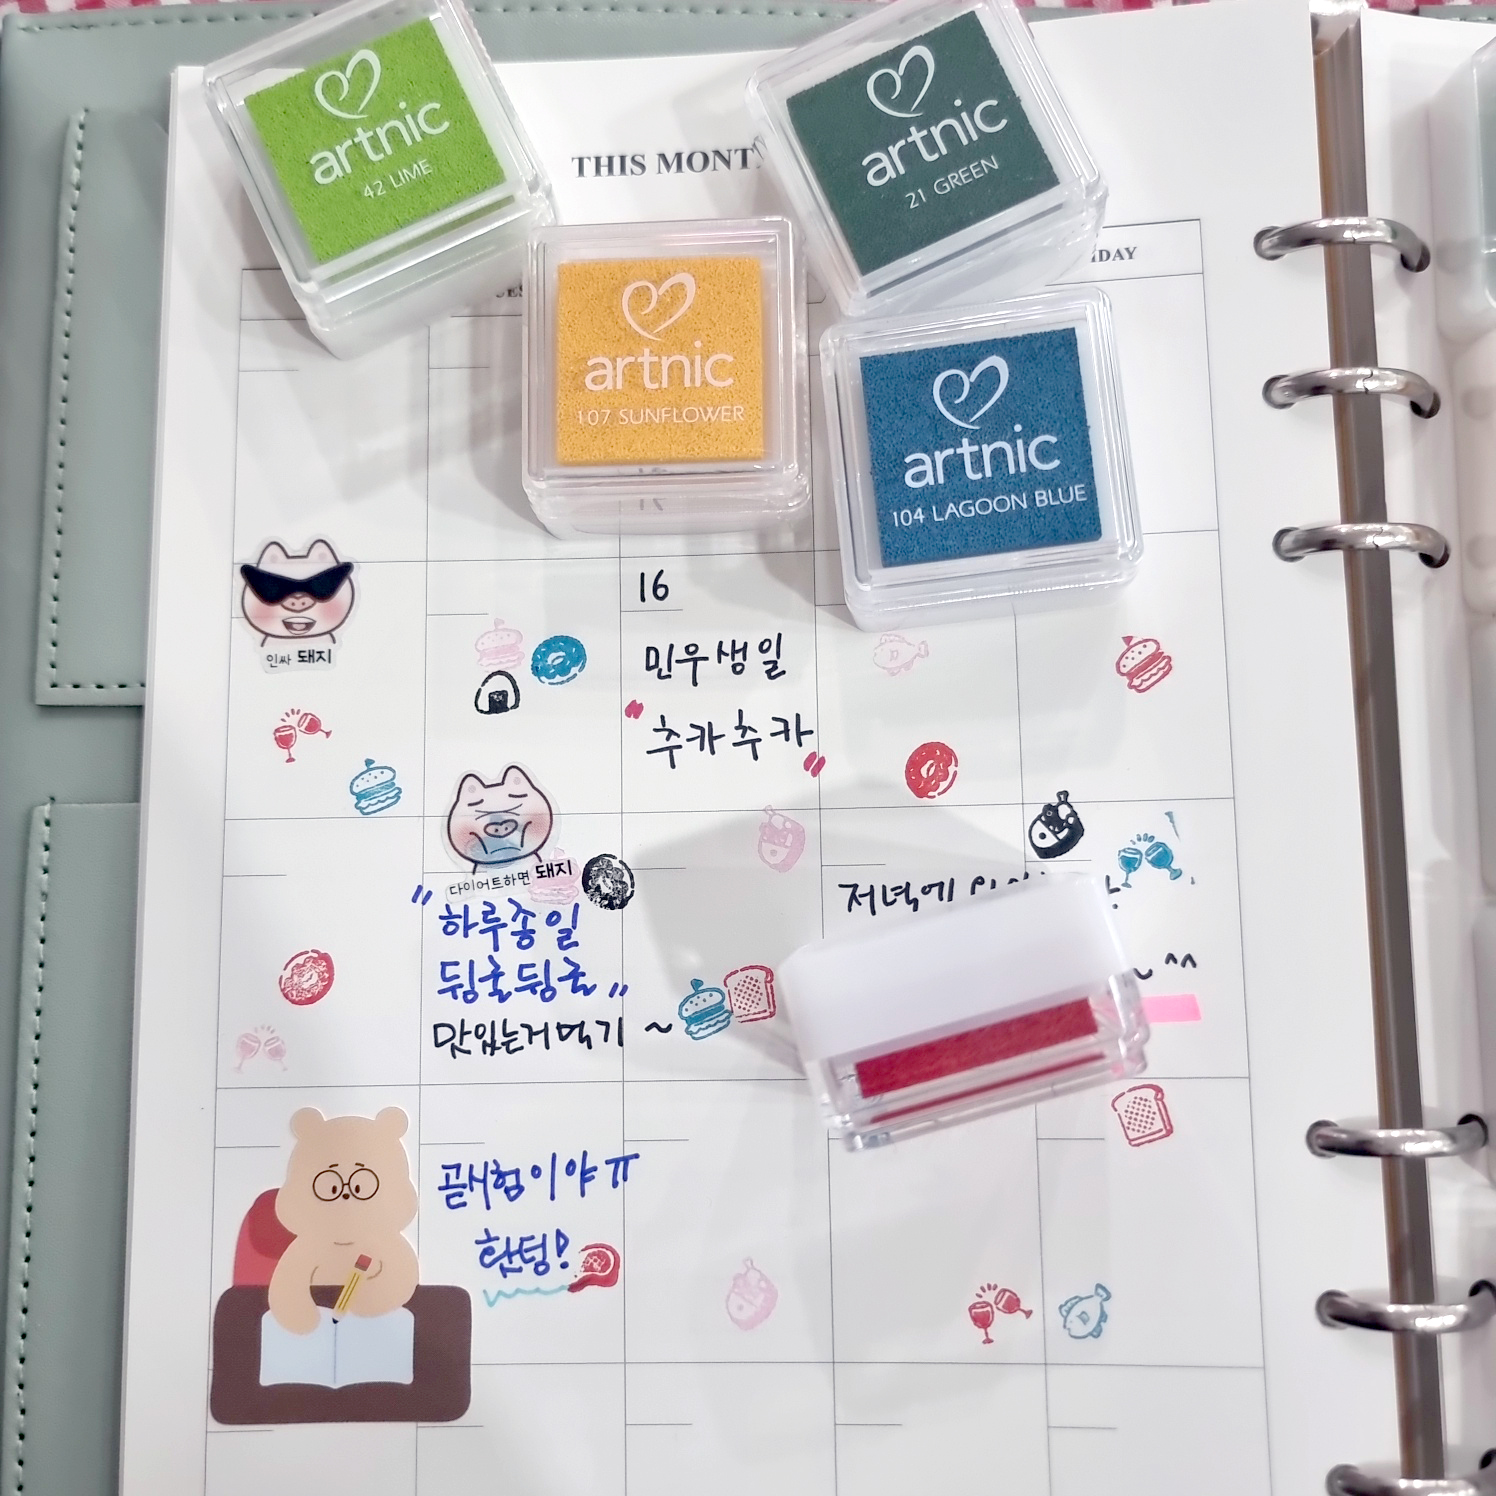 artnic
42 LIME
THIS MONT
artnic
21 GREEN
DAY
artnic
107 SUNFLOWER
artnic
104 LAGOON BLUE
17
인싸 돼지
16
민우생일
"추카추카"
다이어트하면 돼지
"하루종일
뒹굴뒹굴"
맛있는거먹기 ~
저녁에
~ ^^
곧시험이야 ㅠ
홧팅!